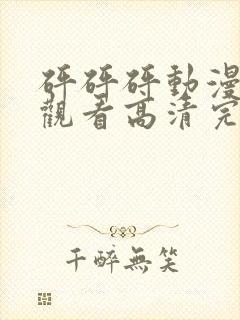 砰砰砰動漫
觀看高清完
千醉無笑